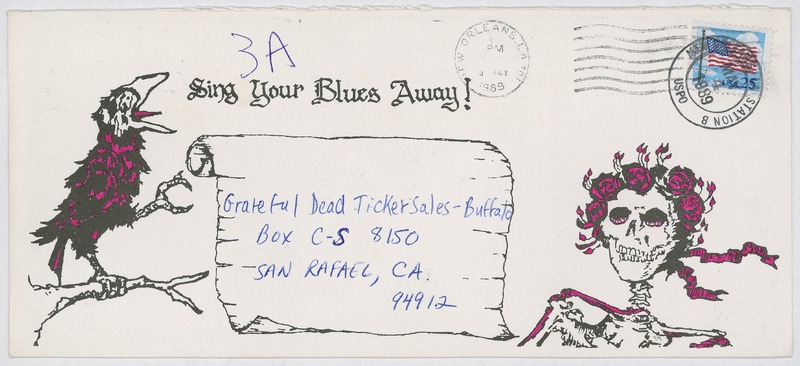 3A
Sing Your Blues Away!
NEW ORLEANS, LA
PM
4 MAY
1989
USA 25
1989
USPO
STATION B
Grateful Dead Ticket Sales-Buffalo
Box C-S 8150
SAN RAFAEL, CA.
94912